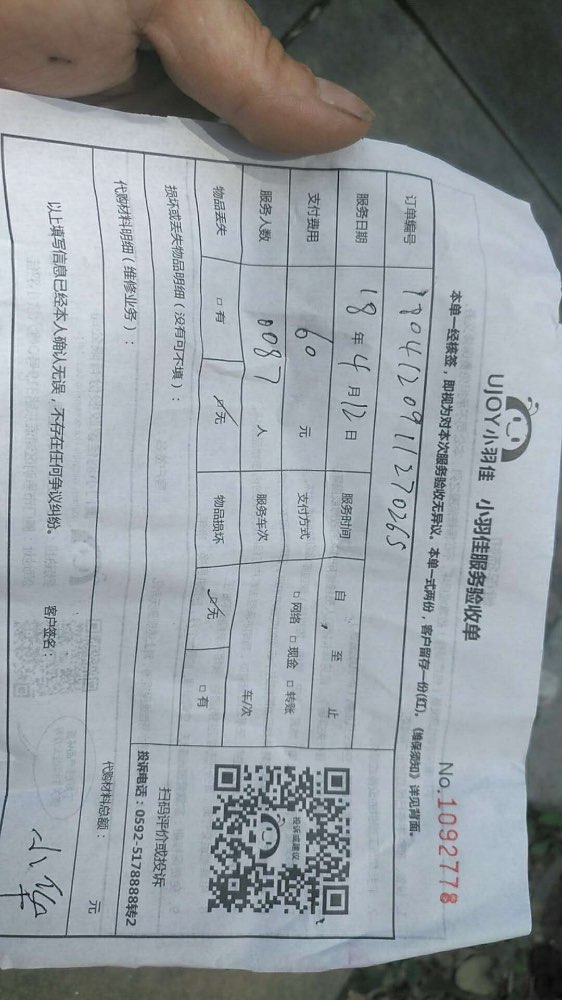 UJOY小羽佳 小羽佳服务验收单
No.1092778
本单一经核签，即视为对本次服务验收无异议。本单一式两份，客户留存一份(红)。《维保须知》详见背面。
订单编号 1804120911270265
服务日期 18年4月12日 服务时间 自 至 止
支付费用 60 元 支付方式 □网络 □现金 □转账
服务人数 0087 人 服务车次 车/次
物品丢失 □有 □无 物品损坏 □无 □有
损坏或丢失物品明细（没有可不填）：
投诉或建议
扫码评价或投诉
投诉电话：0592-5178888转2
代购材料明细（维修业务）： 代购材料总额： 元
以上填写信息已经本人确认无误，不存在任何争议纠纷。 客户签名：